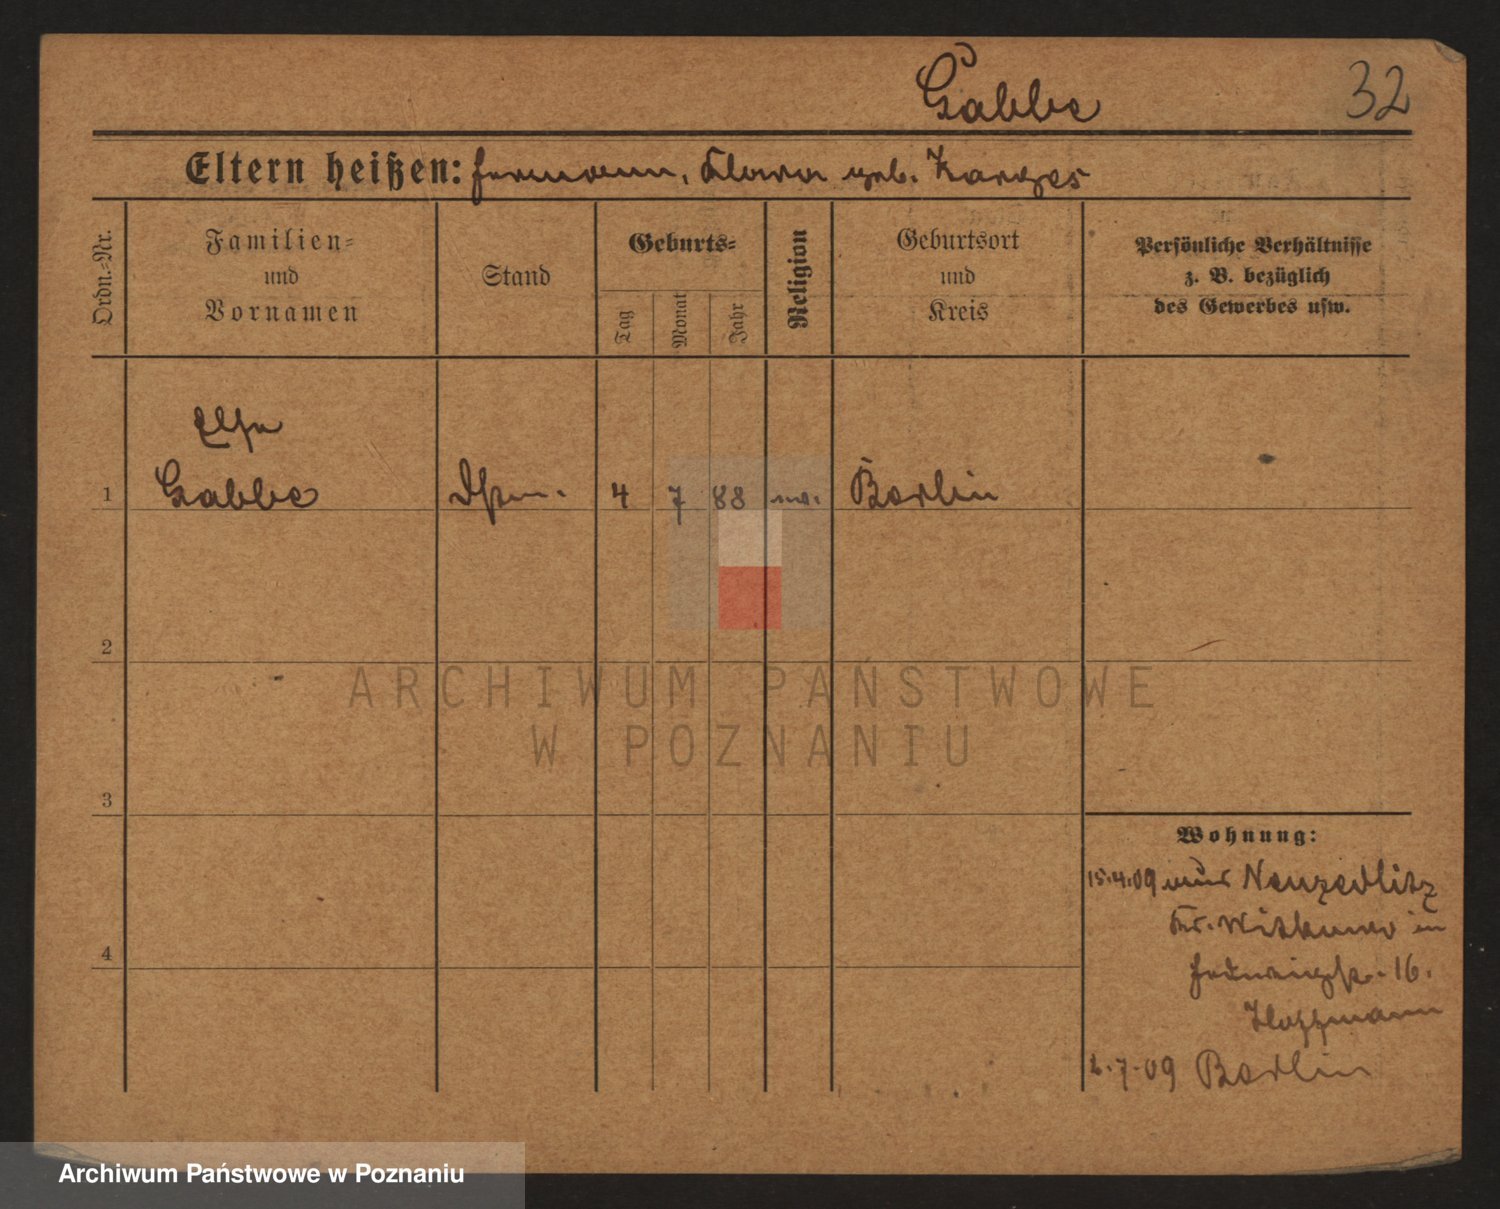 Gabbe
32
Eltern heißen: Hermann, Klara geb. Karges
Ordn.-Nr.
Familien-
und
Vornamen
Stand
Geburts-
Tag
Monat
Jahr
Religion
Geburtsort
und
Kreis
Persönliche Verhältnisse
z. B. bezüglich
des Gewerbes usw.
Elsa
1 Gabbe 4 7 88 ev. Berlin
2
ARCHIWUM PAŃSTWOWE
W POZNANIU
3
Wohnung:
15.4.09 aus Neuzedlitz
Kr. Witkowo in
4
Hedwigstr. 16.
Hoffmann
2.7.09 Berlin
Archiwum Państwowe w Poznaniu